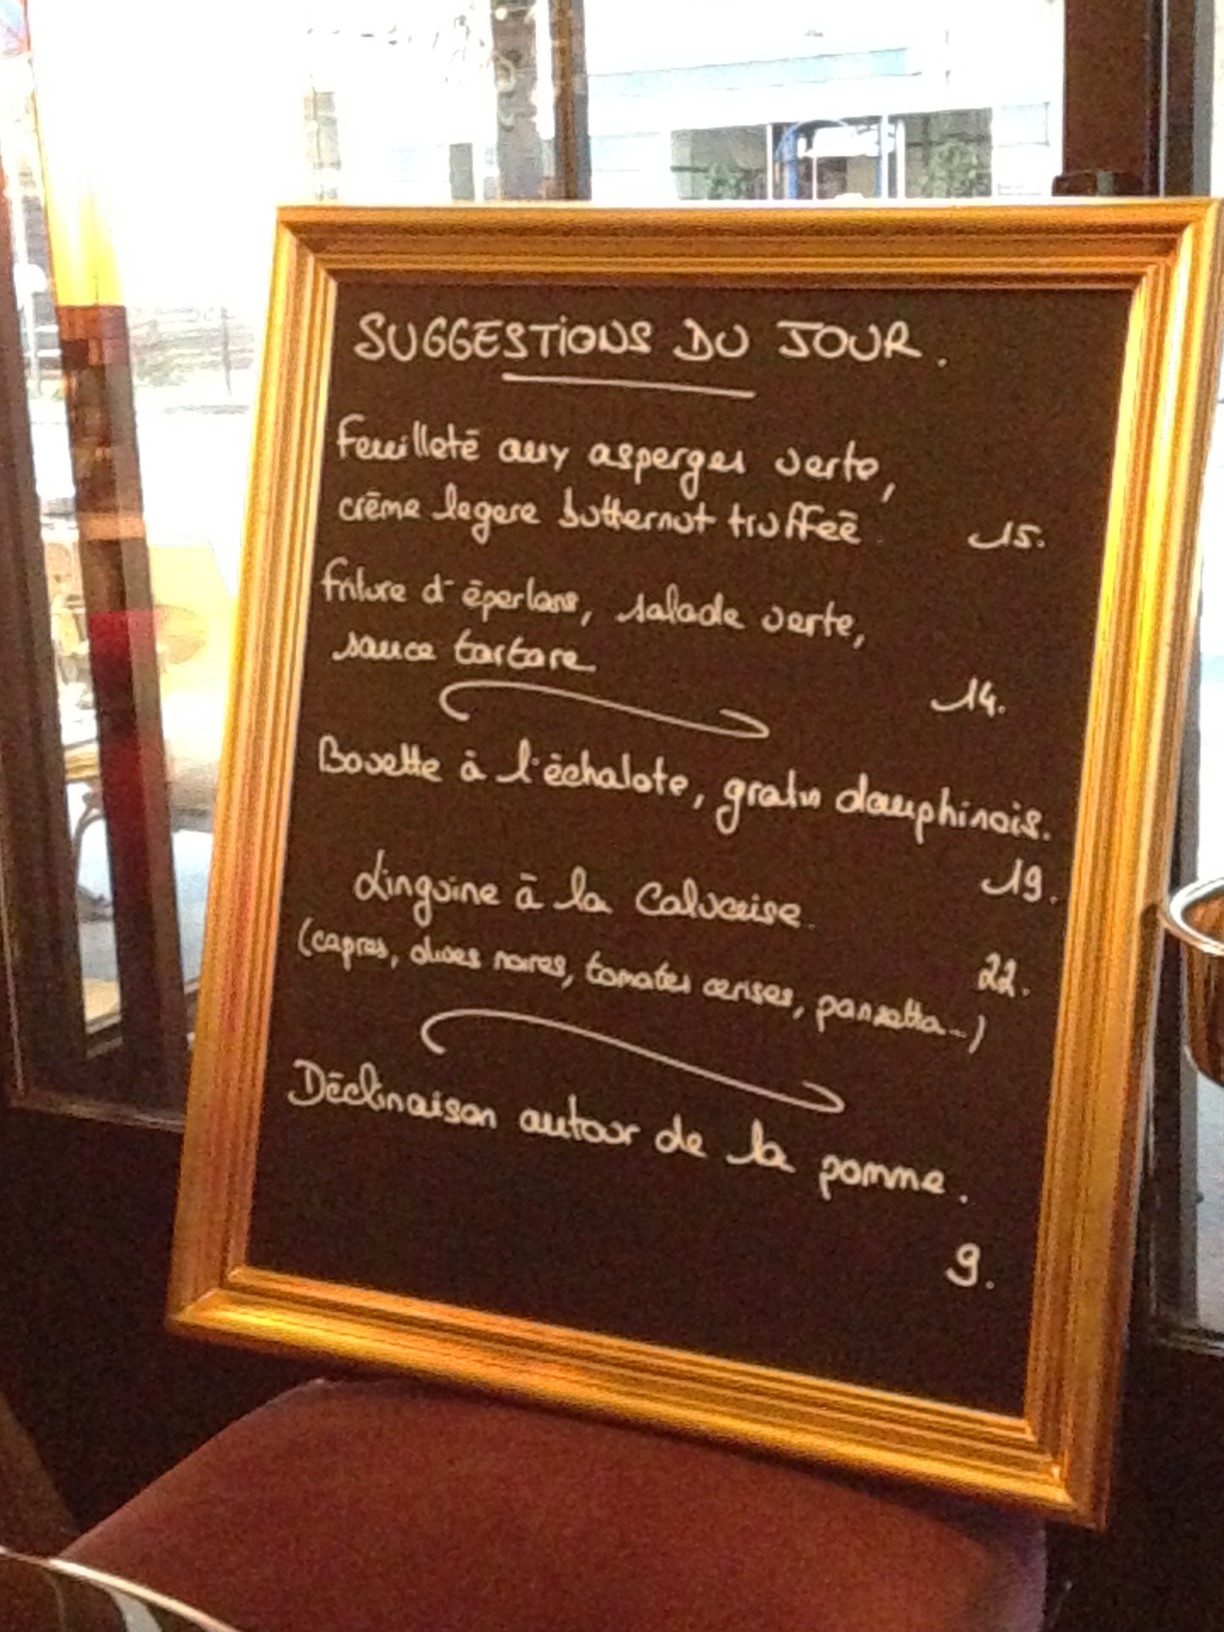 SUGGESTIONS DU JOUR.
Feuilleté aux asperges verte,
crème legere butternut truffée 15.
friture d'éperlans, salade verte,
sauce tartare
14.
Bavette à l'échalote, gratin dauphinois.
19.
Linguine à la Calvaise.
22.
(capres, olives noires, tomates cerises, pansetta...)
Déclinaison autour de la pomme.
9.